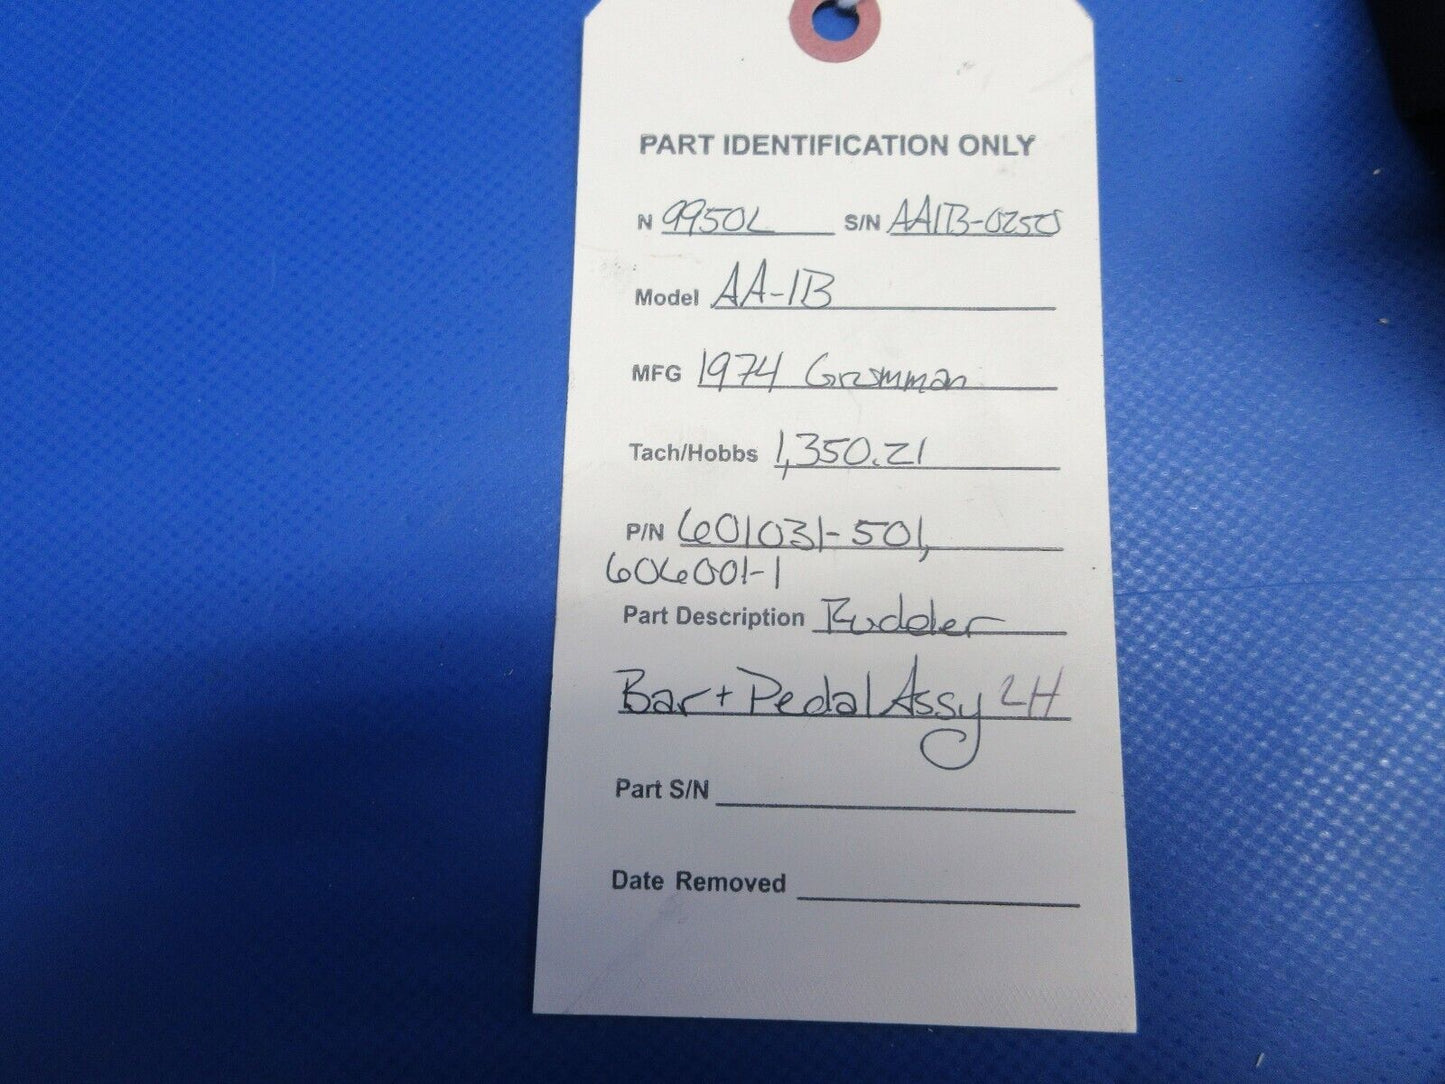 PART IDENTIFICATION ONLY
N 9950L S/N AA1B-0250
Model AA-1B
MFG 1974 Grumman
Tach/Hobbs 1,350.21
P/N 601031-501,
606001-1
Part Description Rudder
Bar + Pedal Assy LH
Part S/N
Date Removed